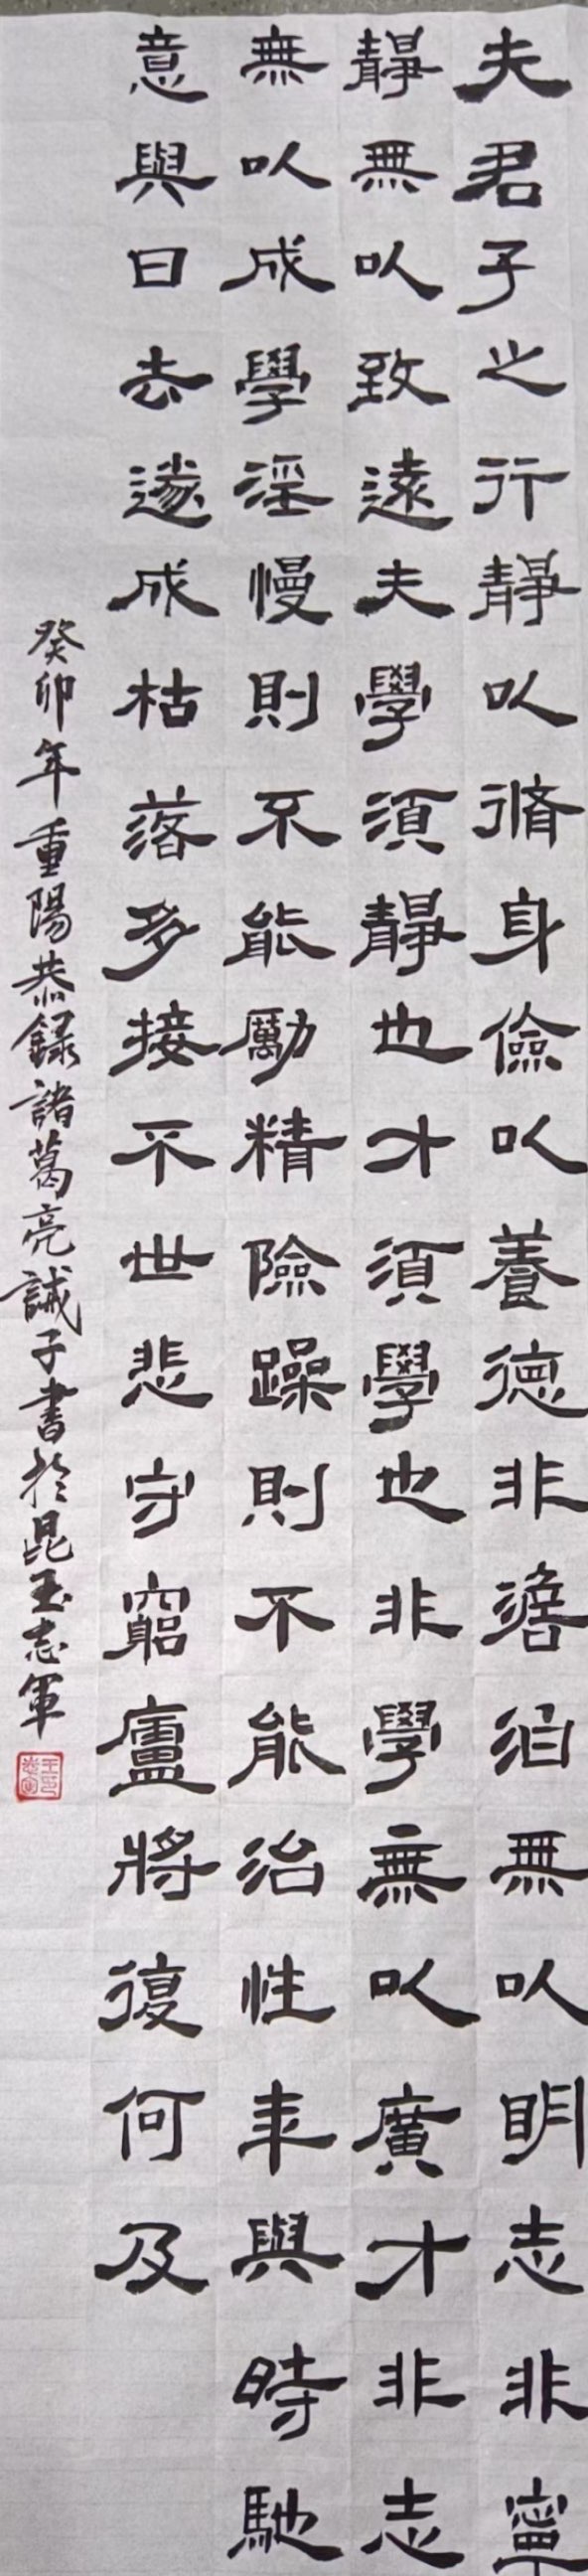 夫君子之行靜以脩身儉以養德非澹泊無以明志非寧
靜無以致遠夫學須靜也才須學也非學無以廣才非志
無以成學淫慢則不能勵精險躁則不能治性年與時馳
意與日去遂成枯落多接不世悲守窮廬將復何及
癸卯年重陽恭錄諸葛亮誡子書於昆王志軍